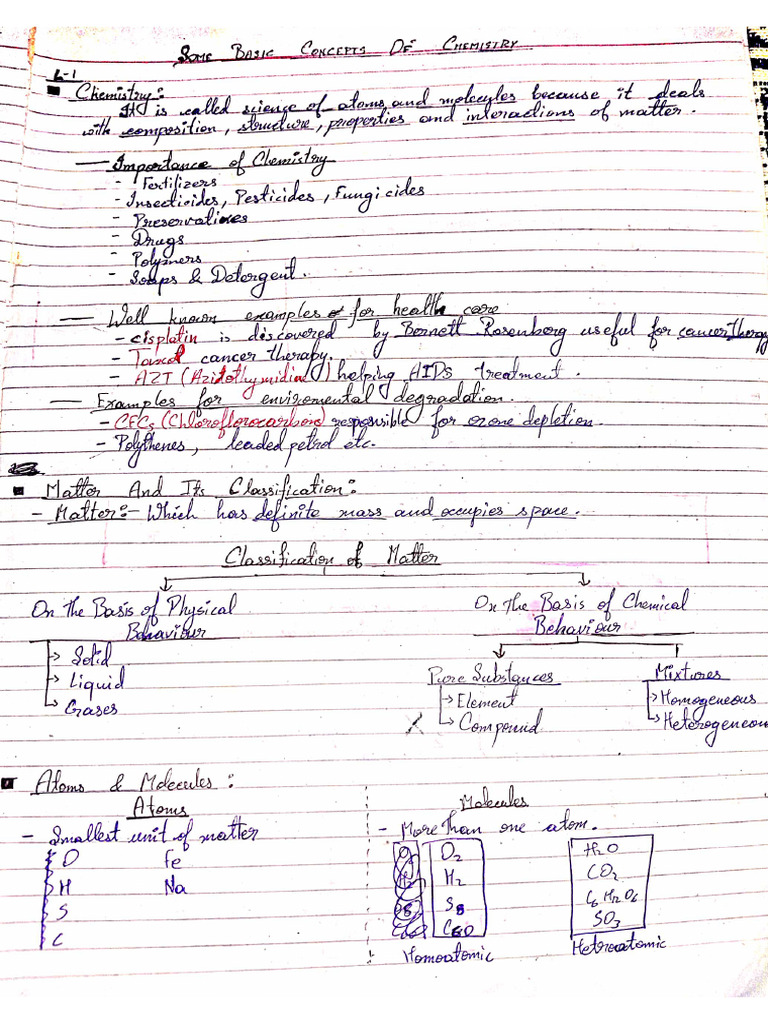 Some Basic Concepts Of Chemistry
L-1
Chemistry:
It is called science of atoms and molecules because it deals
with composition, structure, properties and interactions of matter.
— Importance of Chemistry
- Fertilizers
- Insecticides, Pesticides, Fungicides
- Preservatives
- Drugs
- Polymers
- Soaps & Detergent.
— Well known examples for health care
- cisplatin is discovered by Bernett Rosenberg useful for cancer therapy
- Taxol cancer therapy.
- AZT (Azidothymidine) helping AIDs treatment.
— Examples for enviromental degradation.
- CFCs (Chloroflorocarbon) responsible for ozone depletion.
- Polythenes, leaded petrol etc.
Matter And Its Classification:
- Matter:- Which has definite mass and occupies space.
Classification of Matter
On The Basis of Physical Behaviour
Solid
Liquid
Gases
On The Basis of Chemical Behaviour
Pure Substances
Element
Compound
Mixtures
Homogeneous
Heterogeneous
Atoms & Molecules:
Atoms
- Smallest unit of matter
O Fe
H Na
S
C
Molecules
- More than one atom.
O2
H2
S8
C60
Homoatomic
H2O
CO2
C6H12O6
SO3
Hetroatomic